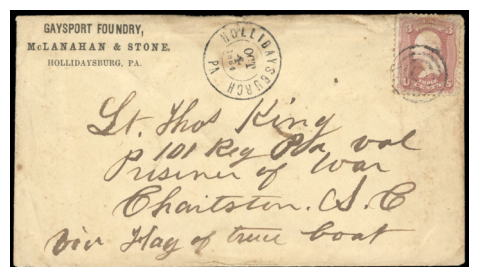 GAYSPORT FOUNDRY,
McLANAHAN & STONE,
HOLLIDAYSBURG, PA.
HOLLIDAYSBURGH PA
OCT
4
3 3
THREE
CENTS
Lt. Thos King
101 Reg Pa vol
Prisoner of War
Charlston. S. C
via Flag of truce boat